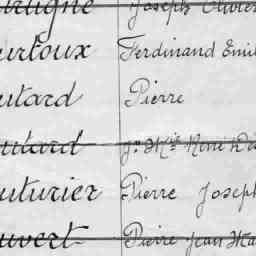 urtigne Joseph Olivier
urtoux Ferdinand Emil
utard Pierre
utard Jn Mie René Dé
uturier Pierre Joseph
uvert Pierre Jean Ma